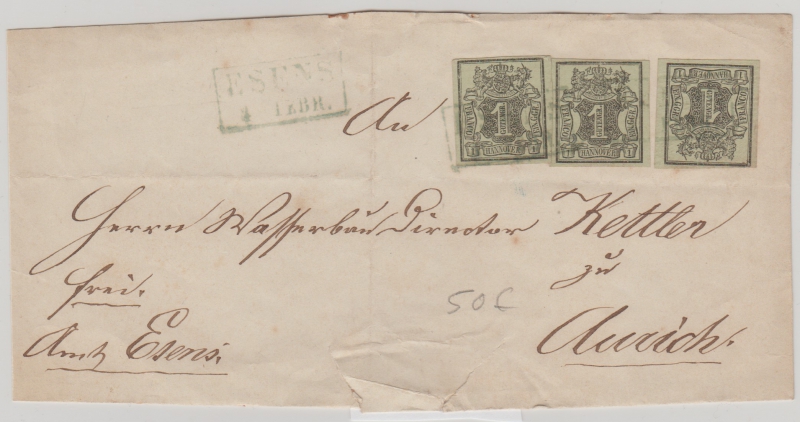 ESENS
4 FEBR.
An
Herrn Wasserbau Director Kettler
zu
Aurich.
frei.
Amt Esens.
50£
1
HANNOVER
1
HANNOVER
1
HANNOVER